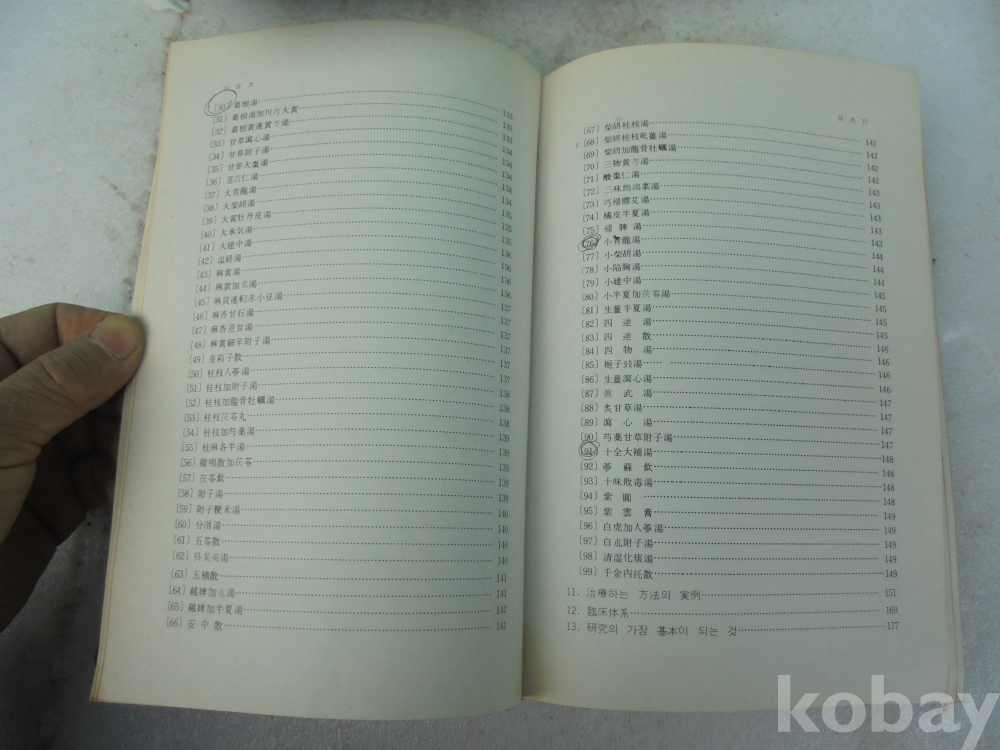 目次
[30] 葛根湯 133
[31] 葛根湯加川芎大黄 133
[32] 葛根黄連黄芩湯 133
[33] 甘草瀉心湯 134
[34] 甘草附子湯 134
[35] 甘麥大棗湯 134
[36] 薏苡仁湯 134
[37] 大青龍湯 134
[38] 大柴胡湯 135
[39] 大黄牡丹皮湯 135
[40] 大承気湯 135
[41] 大建中湯 136
[42] 温経湯 136
[43] 麻黄湯 136
[44] 麻黄加朮湯 136
[45] 麻黄連軺赤小豆湯 136
[46] 麻杏甘石湯 137
[47] 麻杏薏甘湯 137
[48] 麻黄細辛附子湯 137
[49] 散 137
[50] 桂枝人蔘湯 138
[51] 桂枝加附子湯 138
[52] 桂枝加龍骨牡蠣湯 138
[53] 桂枝茯苓丸 138
[54] 桂枝加芍薬湯 139
[55] 桂麻各半湯 139
[56] 雞鳴散加茯苓 139
[57] 茯苓飮 139
[58] 附子湯 139
[59] 附子粳米湯 140
[60] 分消湯 140
[61] 五苓散 140
[62] 呉茱萸湯 140
[63] 五積散 141
[64] 越婢加朮湯 141
[65] 越婢加半夏湯 141
[66] 安中散 141
目次
[67] 柴胡桂枝湯 141
[68] 柴胡桂枝乾薑湯 142
[69] 柴胡加龍骨牡蠣湯 142
[70] 三物黄芩湯 142
[71] 酸棗仁湯 142
[72] 三味鷓鴣菜湯 143
[73] 芎帰膠艾湯 143
[74] 橘皮半夏湯 143
[75] 帰脾湯 143
[76] 小青龍湯 143
[77] 小柴胡湯 144
[78] 小陷胸湯 144
[79] 小建中湯 144
[80] 小半夏加茯苓湯 145
[81] 生薑半夏湯 145
[82] 四逆湯 145
[83] 四逆散 145
[84] 四物湯 146
[85] 梔子豉湯 146
[86] 生薑瀉心湯 146
[87] 眞武湯 146
[88] 炙甘草湯 147
[89] 瀉心湯 147
[90] 芍薬甘草附子湯 147
[91] 十全大補湯 148
[92] 蔘蘇飮 148
[93] 十味敗毒湯 148
[94] 紫圓 148
[95] 紫雲膏 149
[96] 白虎加人蔘湯 149
[97] 白朮附子湯 149
[98] 清湿化痰湯 149
[99] 千金内托散 149
11. 治療하는 方法의 実例 151
12. 臨床体系 169
13. 研究의 가장 基本이 되는 것 177
kobay